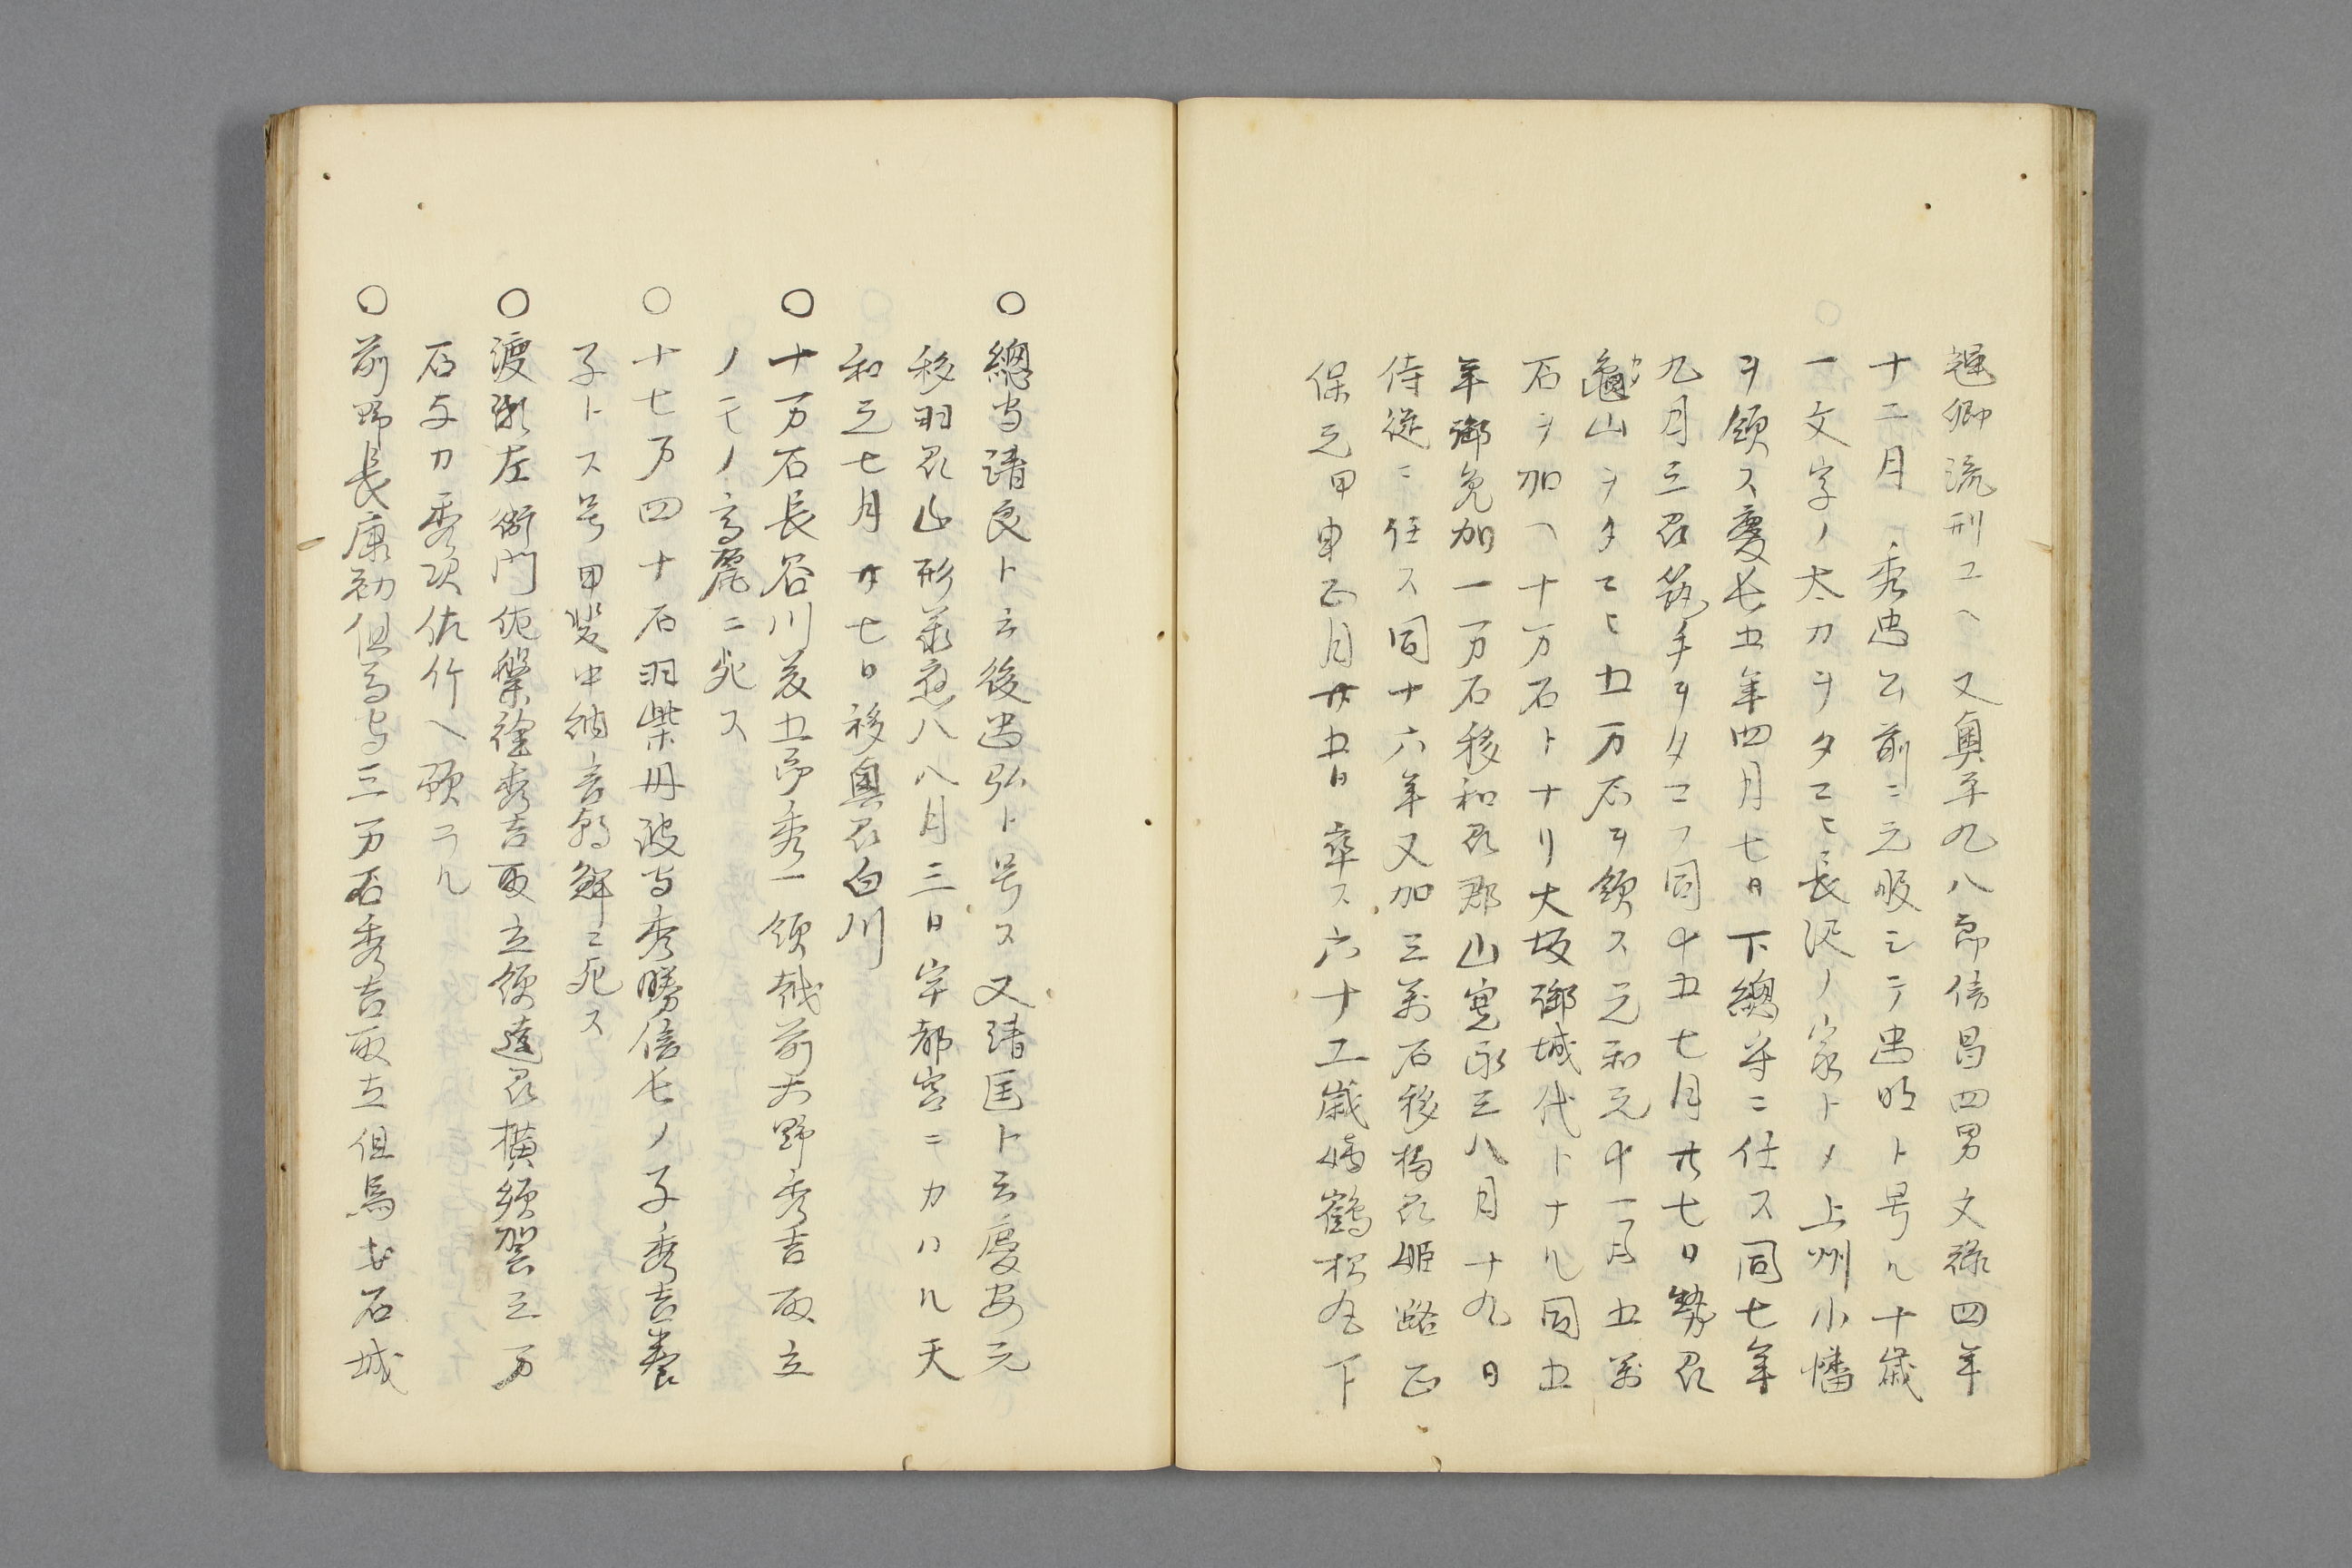 卿流刑ユヘ又奥平九八郎信昌四男文禄四年
十二月秀忠公前ニ元服シテ忠明ト号ル十歳
一文字ノ太刀ヲタマヒ長沢ノ家トメ上州小幡
ヲ領ス慶長五年四月七日下總守ニ任ス同七年
九月三州筑手ヲタマフ同十五七月廿七日勢州
亀山ヲタマヒ五万石ヲ領ス元和元十一月五萬
石ヲ加ヘ十万石トナリ大坂御城代トナル同五
年御免加一万石移和州郡山寛永三八月十九日
侍従ニ任ス同十六年又加三萬石移播州姫路正
保元甲申正月廿五日卒ス六十二歳嫡鶴松丸下
○總守清良ト云後忠弘ト号ス又清匡ト云慶安元
移羽州山形承應八八月三日宇都宮ニカハル天
和元七月廿七日移奥州白川
○十万石長谷川藤五郎秀一領越前大野秀吉取立
ノモノ高麗ニ死ス
○十七万四十石羽柴丹波守秀勝信長ノ子秀吉養
子トス号甲斐中納言朝鮮ニ死ス
○渡瀬左衛門佐繁詮秀吉取立領遠州横須賀三万
石与力秀次佐竹ヘ預ラル
○前野長康初但馬守三万石秀吉取立但馬出石城